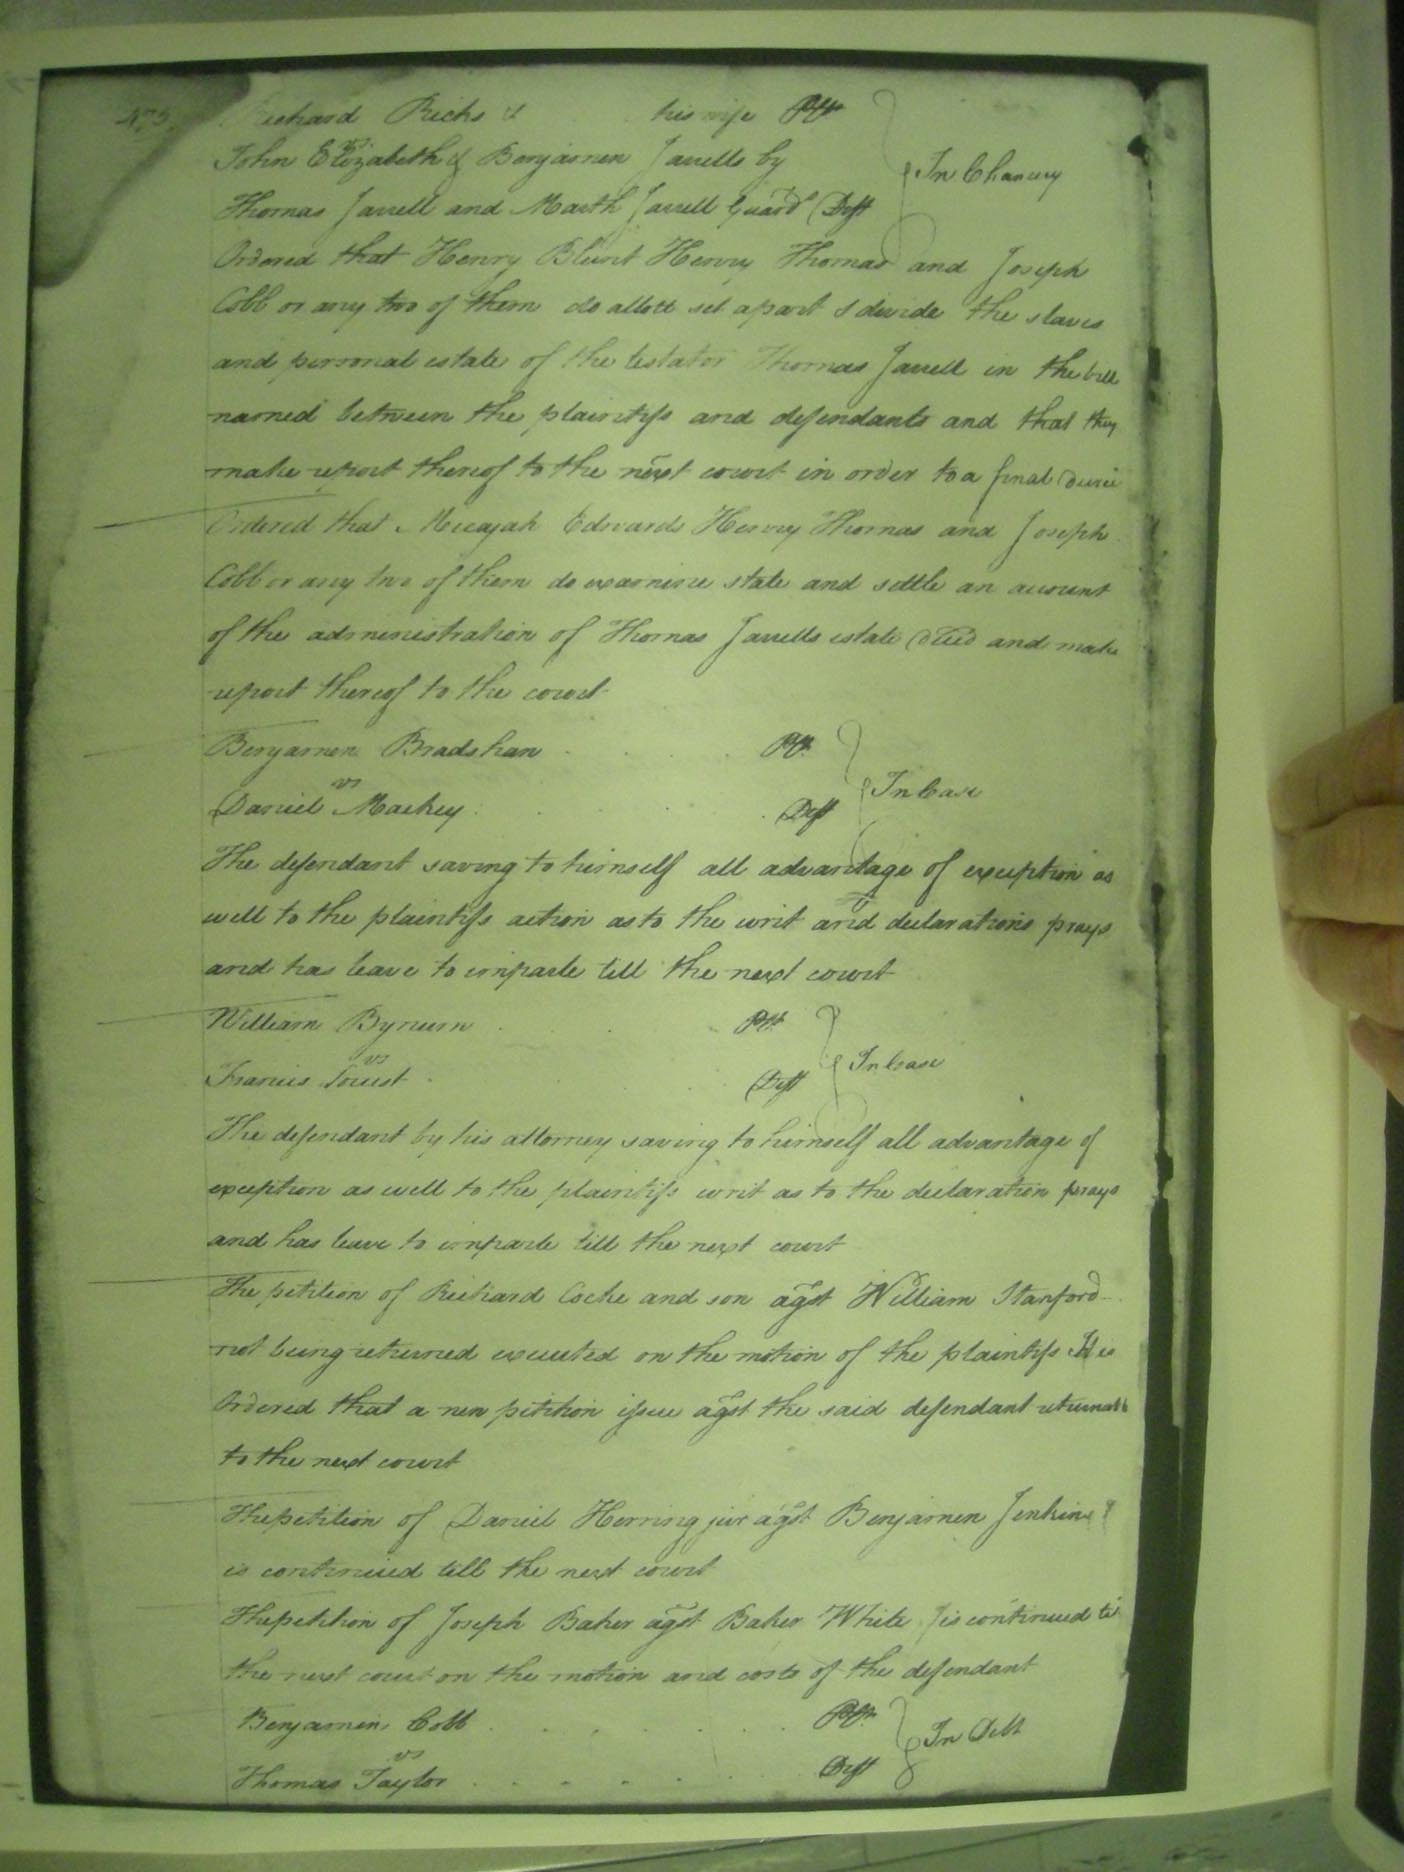 No 3. Richard Ricks & his wife Plt
vs
John Elizabeth & Benjamin Jarrells by
Thomas Jarrell and Marth Jarrell Guard Deft
In Chancery
Ordered that Henry Blunt Henry Thomas and Joseph
Cobb or any two of them do allott set apart & divide the slaves
and personal estate of the testator Thomas Jarrell in the bill
named between the plaintifs and defendants and that they
make report thereof to the next court in order to a final
Ordered that Micajah Edwards Henry Thomas and Joseph
Cobb or any two of them do examine state and settle an account
of the administration of Thomas Jarrells estate decd and make
report thereof to the court
Benjamen Bradshaw Plt
vs
In Case
Daniel Mackey Deft
The defendant saving to himself all advantage of exception as
well to the plaintifs action as to the writ and declarations prays
and has leave to imparle till the next court
William Bynum Plt
vs
In Case
Francis Deft
The defendant by his attorney saving to himself all advantage of
exception as well to the plaintifs writ as to the declaration prays
and has leave to imparle till the next court
The petition of Richard Cocke and son agst William Stanford
not being returned executed on the motion of the plaintifs It is
Ordered that a new petition issue agst the said defendant
to the next court
The petition of Daniel Herring jur agst Benjamen Jenkins
is continued till the next court
The petition of Joseph Baker agst Baker White is continued til
the next court on the motion and costs of the defendant
Benjamin Cobb Plt
vs
In Debt
Thomas Taylor Deft